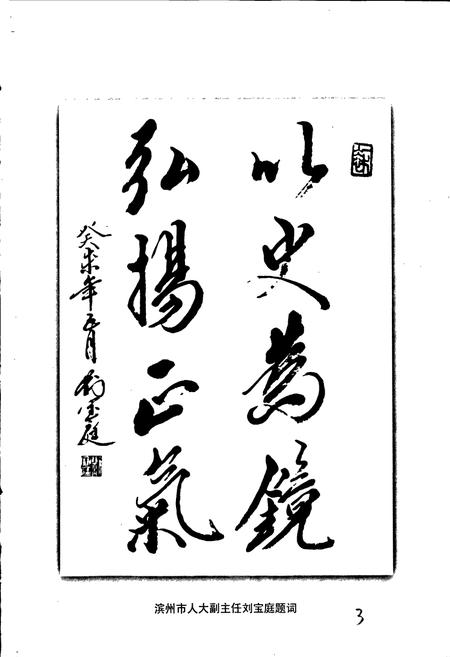 以史為鏡
弘揚正氣
癸未年五月 劉宝庭
滨州市人大副主任刘宝庭题词
3